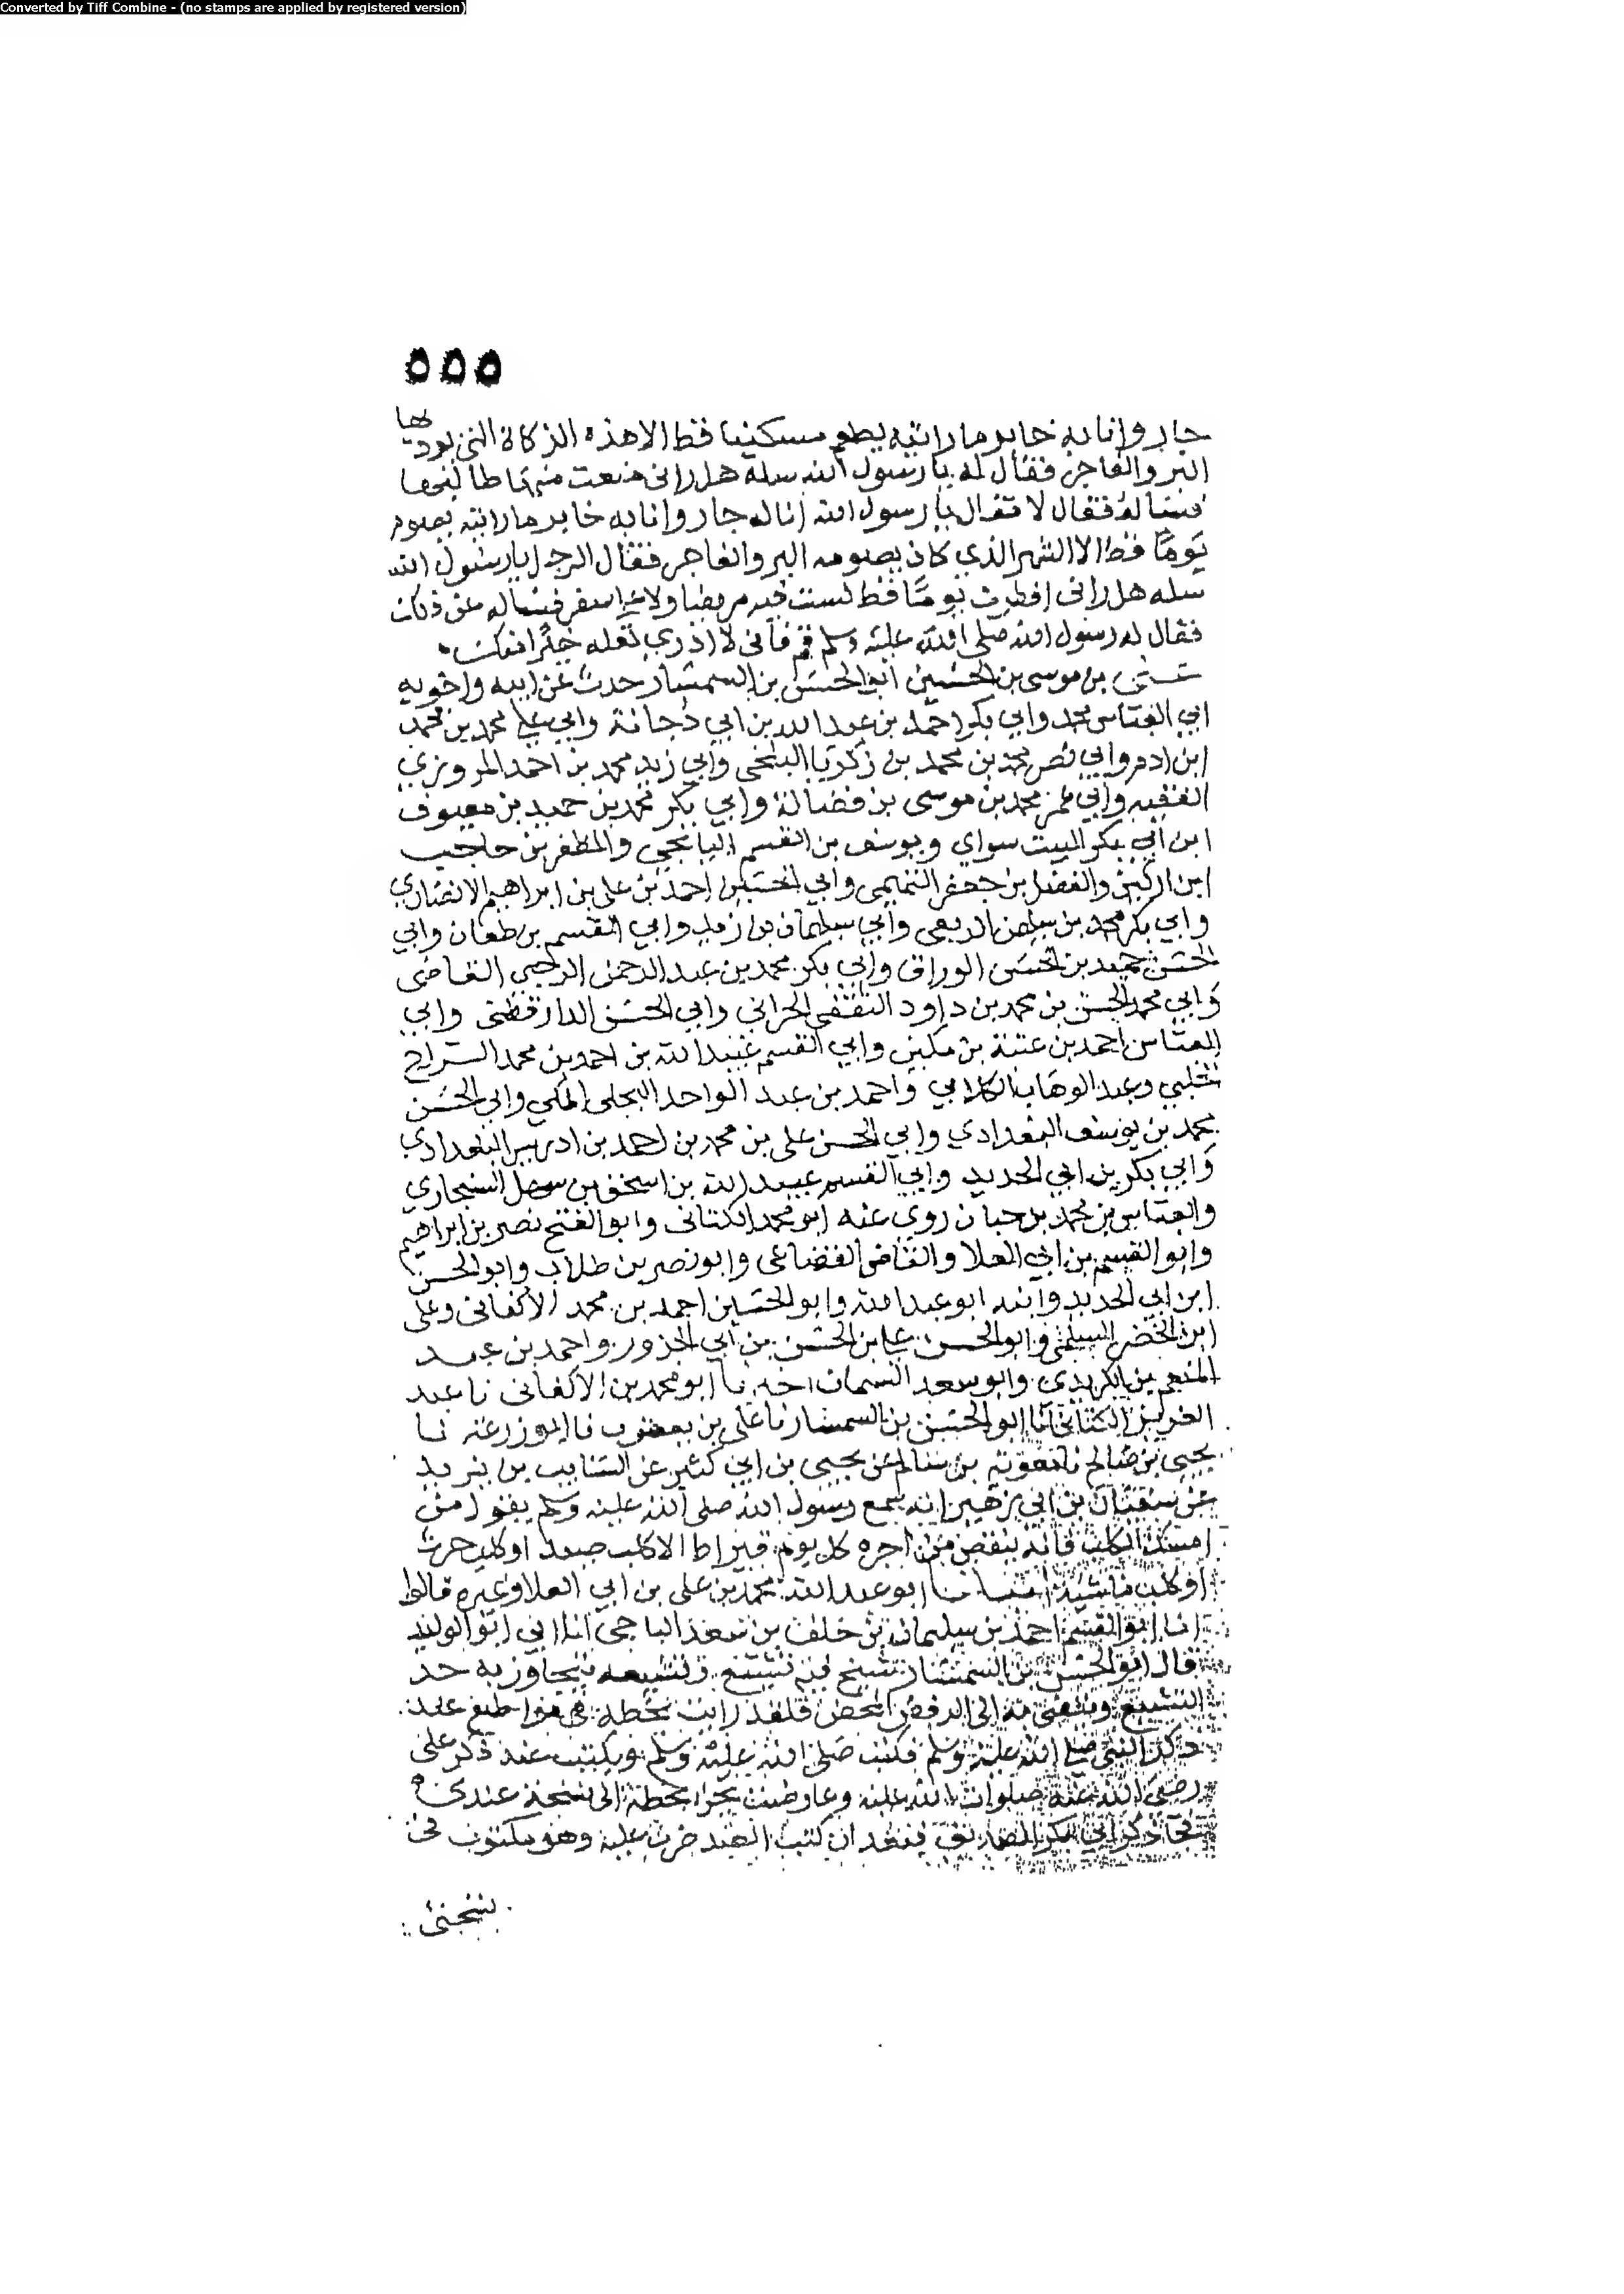 Converted by Tiff Combine - (no stamps are applied by registered version)
٥٥٥
جار وانا به خابر ما رايته يطعم مسكينا قط الا هذه الزكاة التي يوديها
البر والفاجر فقال له يا رسول الله سله هل راني منعت منها طالبها
فساله فقال لا فقال يا رسول الله انا له جار وانا به خابر ما رايته يصوم
يوما قط الا الشهر الذي كان يصومه البر والفاجر فقال الرجل يا رسول الله
سله هل راني افطرت يوما قط لست فيه مريضا ولا على سفر فساله عن ذلك
فقال له رسول الله صلى الله عليه وسلم قم فاني لا ادري لعله خيرا منك
علي بن موسى بن الحسين ابو الحسن بن السمسار حدث عن ابيه واخويه
ابي العباس محمد وابي بكر احمد بن عبد الله بن ابي دجانة وابي علي محمد بن محمد
ابن ادم وابي نصر محمد بن محمد بن زكريا البلخي وابي زيد محمد بن احمد المروزي
الفقيه وابي عمر محمد بن موسى بن فضالة وابي بكر محمد بن حميد بن معيوف
ابن ابي بكر البيت سواي ويوسف بن القسم الميانجي والمظفر بن حاجب
ابن اركين والفضل بن جعفر التميمي وابي الحسين احمد بن علي بن ابراهيم الانصاري
وابي بكر محمد بن سليمن الربعي وابي سليمان بن زبر وابي القسم بن طعان وابي
الحسن حميد بن الحسن الوراق وابي بكر محمد بن عبد الرحمن الرحبي القاضي
وابي محمد الحسن بن محمد بن داود الثقفي الحراني وابي الحسن الدارقطني وابي
العباس احمد بن عتبة بن مكين وابي القسم عبيد الله بن احمد بن محمد السراج
الحلبي وعبد الوهاب الكلابي واحمد بن عبد الواحد البجلي المكي وابي الحسن
محمد بن يوسف البغدادي وابي الحسن علي بن محمد بن احمد بن ادريس البغدادي
وابي بكر بن ابي الحديد وابي القسم عبيد الله بن اسحق بن سهل السنجاري
والعباس بن محمد بن حبان روى عنه ابو محمد الكتاني وابو الفتح نصر بن ابراهيم
وابو القسم بن ابي العلا والقاضي القضاعي وابو نصر بن طلاب وابو الحسن
ابن ابي الحديد وابنه ابو عبد الله وابو الحسين احمد بن محمد الاكفاني وعلي
ابن الخضر السلمي وابو الحسن علي بن الحسن بن ابي الحزور واحمد بن عبد
المنعم بن الكريدي وابو سعد السمان اخبرنا ابو محمد بن الاكفاني نا عبد
العزيز الكتاني انا ابو الحسن بن السمسار نا علي بن يعقوب نا ابو زرعة نا
يحيى بن صالح نا معوية بن سلام عن يحيى بن ابي كثير عن السايب بن يزيد
عن سفيان بن ابي زهير انه سمع رسول الله صلى الله عليه وسلم يقول من
امسك الكلب فانه ينقص من اجره كل يوم قيراط الا كلب صيد او كلب حرث
او كلب ماشية انبانا ابو عبد الله محمد بن علي بن ابي العلا وغيره قالوا
انا ابو القسم احمد بن سليمان بن خلف بن سعد الباجي انا ابي ابو الوليد
قال ابو الحسن بن السمسار شيخ فيه تشيع وتشيعه يتجاوز به حد
التشيع ويفضي به الى الرفض المحض فلقد رايت بخطه في مواضع عند
ذكر النبي صلى الله عليه وسلم فكتب صلى الله عليه وسلم ويكتب عند ذكر علي
رضي الله عنه صلوات الله عليه وعارضت بجزا بخطه الى نسخة عندي
ذكر ابي بكر الصديق فبعد ان كتب الصديق ضرب عليه وهو مكتوب في
نسختي